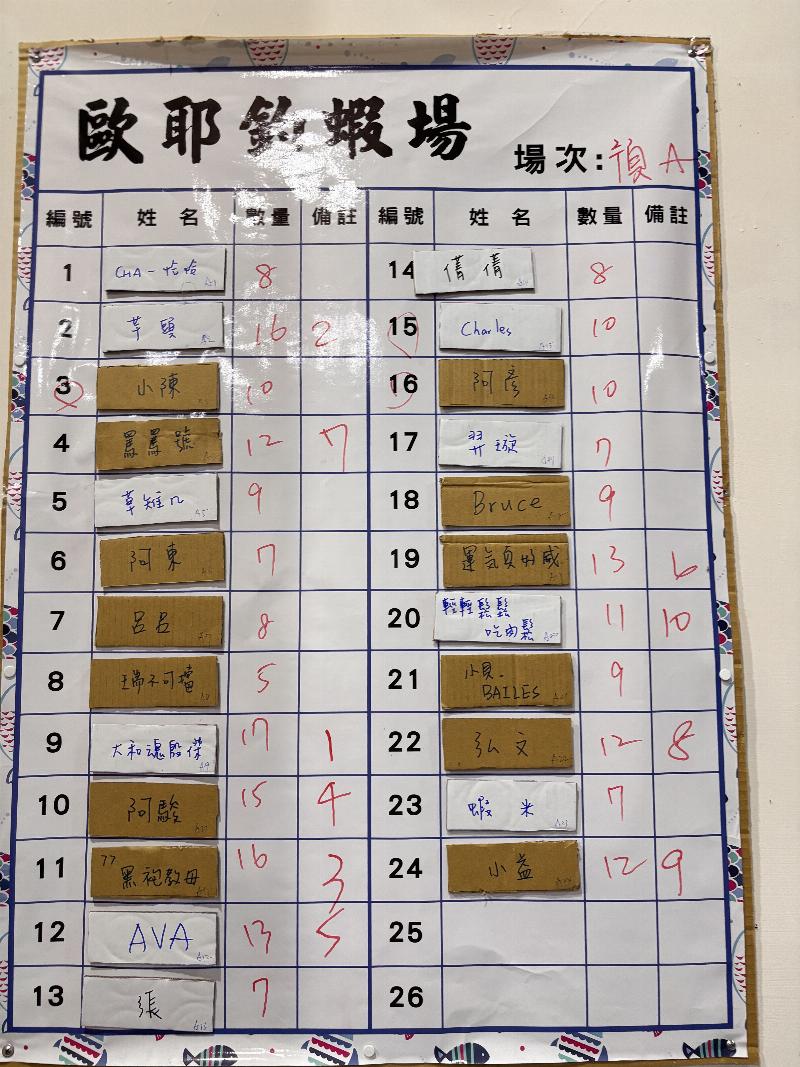 歐耶釣蝦場
場次: 預A
編號 姓名 數量 備註 編號 姓名 數量 備註
1 CHA-恰哈 8
2 芋頭 16 2
3 小陳 10
4 罵罵號 12 7
5 草雉几 9
6 阿東 7
7 呂呂 8
8 瑞不可擋 5
9 大和魂殷傑 17 1
10 阿駿 15 4
11 77 黑袍教母 16 3
12 AVA 13 5
13 張 7
14 蒨蒨 8
15 Charles 10
16 阿彥 10
17 羿璇 7
18 Bruce 9
19 運氣真的好威 13 6
20 輕輕鬆鬆
吃肉鬆 11 10
21 小貝.
BAILES 9
22 弘文 12 8
23 蝦米 7
24 小益 12 9
25
26